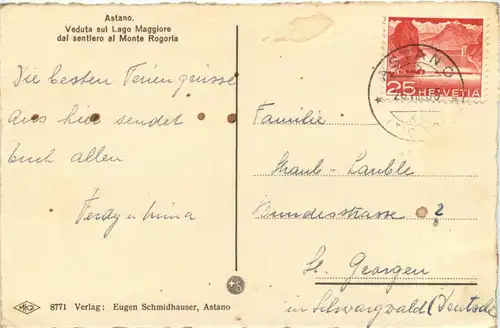 Astano.
Veduta sul Lago Maggiore
dal sentiero al Monte Rogoria
Die besten Feriengrüsse
aus hier sendet
Euch allen
Ferdy u.
25 HELVETIA
ASTANO
Familie
Straub-
Bundesstrasse 2
St. Georgen
in Schwarzwald (Deutschl
MKG 8771 Verlag: Eugen Schmidhauser, Astano